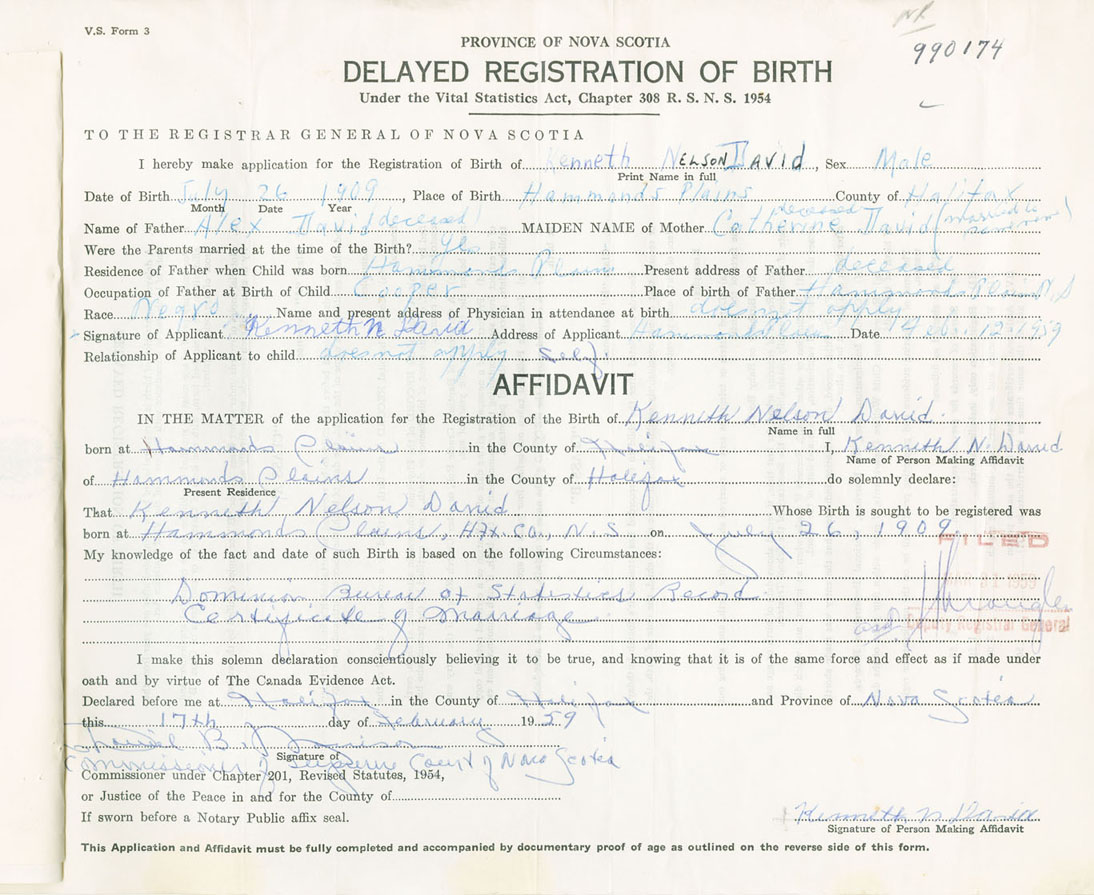 V.S. Form 3
NR
990174
PROVINCE OF NOVA SCOTIA
DELAYED REGISTRATION OF BIRTH
Under the Vital Statistics Act, Chapter 308 R. S. N. S. 1954
TO THE REGISTRAR GENERAL OF NOVA SCOTIA
I hereby make application for the Registration of Birth of Kenneth NELSON DAVID, Sex Male
Print Name in full
Date of Birth July 26 1909 Place of Birth Hammonds Plains County of Halifax
Month Date Year
Name of Father Alex David (deceased) MAIDEN NAME of Mother Catherine David deceased (married
Were the Parents married at the time of the Birth? yes
Residence of Father when Child was born Hammonds Plains Present address of Father deceased
Occupation of Father at Birth of Child Cooper Place of birth of Father Hammonds Plains N.S
Race Negro Name and present address of Physician in attendance at birth does not apply
Signature of Applicant Kenneth N David Address of Applicant Hammonds Plains Date Feb. 12. 1959
Relationship of Applicant to child does not apply Self.
AFFIDAVIT
IN THE MATTER of the application for the Registration of the Birth of Kenneth Nelson David.
Name in full
born at Hammonds Plains in the County of Halifax I, Kenneth N. David
Name of Person Making Affidavit
of Hammonds Plains in the County of Halifax do solemnly declare:
Present Residence
That Kenneth Nelson David Whose Birth is sought to be registered was
born at Hammonds Plains, Hfx. Co., N. S. on July 26, 1909.
My knowledge of the fact and date of such Birth is based on the following Circumstances:
FILED
1959
Dominion Bureau of Statistics Record
Certificate of Marriage
Deputy Registrar General
I make this solemn declaration conscientiously believing it to be true, and knowing that it is of the same force and effect as if made under
oath and by virtue of The Canada Evidence Act.
Declared before me at Halifax in the County of Halifax and Province of Nova Scotia
this 17th day of February 1959
Signature of
Commissioner of Supreme Court of Nova Scotia
Commissioner under Chapter 201, Revised Statutes, 1954,
or Justice of the Peace in and for the County of
If sworn before a Notary Public affix seal.
Kenneth N David
Signature of Person Making Affidavit
This Application and Affidavit must be fully completed and accompanied by documentary proof of age as outlined on the reverse side of this form.